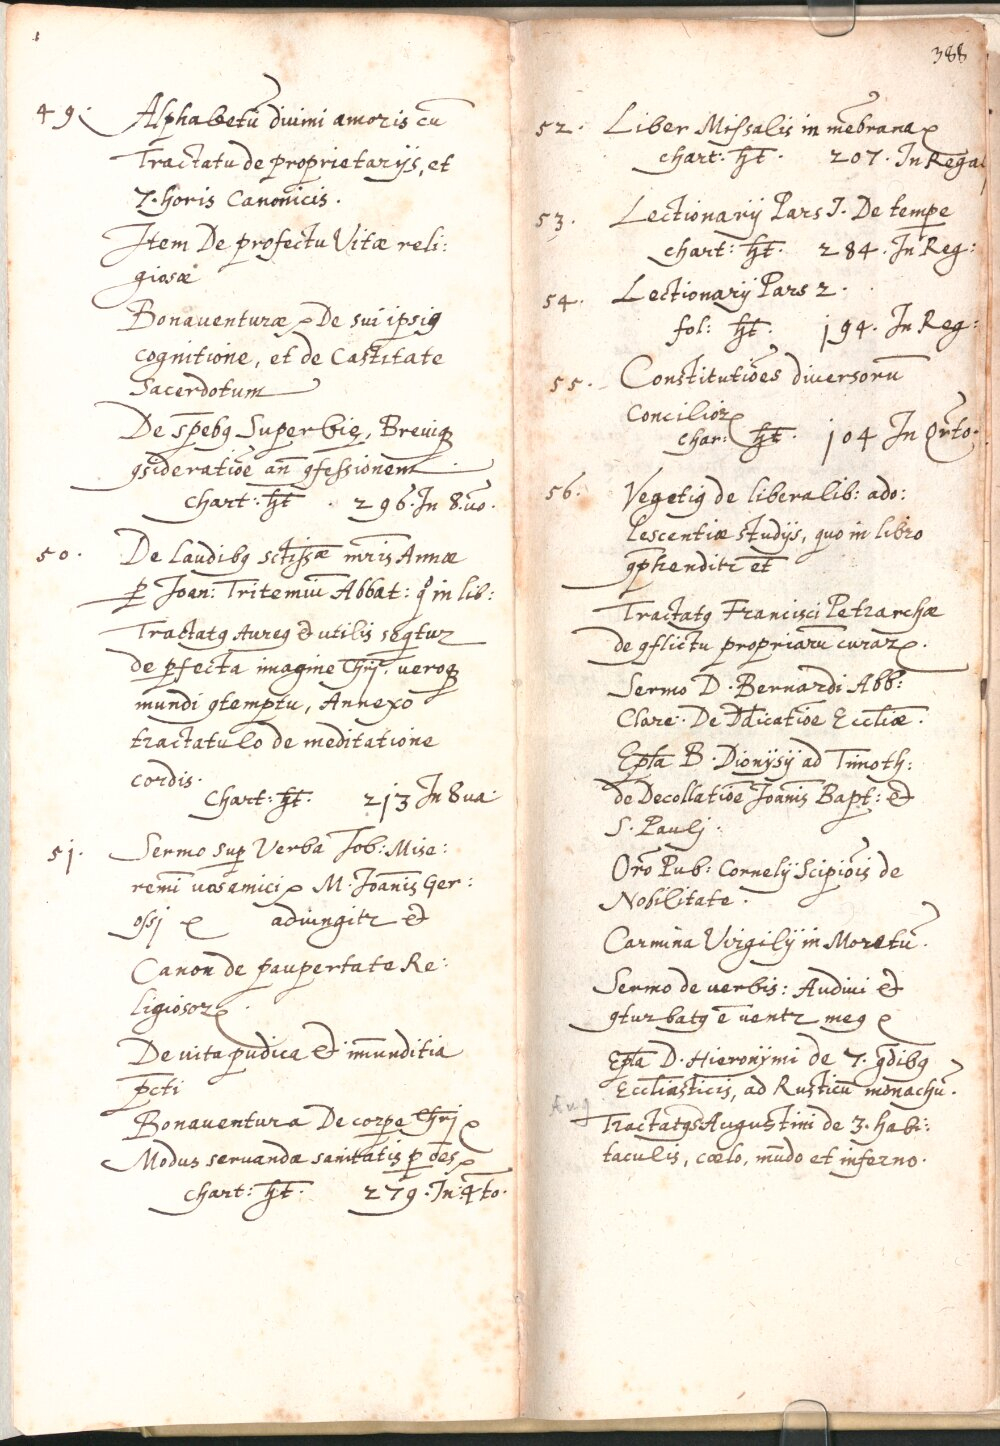 49. Alphabetū diuini amoris cū
Tractatu de proprietarijs, et
7. horis Canonicis.
Item De profectu Vitæ reli:
giosæ
Bonauenturæ De sui ipsiꝰ
cognitione, et de Castitate
Sacerdotum
De spēbꝰ Superbię, Breuiqꝫ
ꝯsideratiōe an̄ ꝯfessionem
Chart: h̄t. 296. In 8.uo.
50. De Laudibꝰ sctissæ mr̄is Annæ
ꝑ Joan: Tritemiū Abbat: q̊ in lib:
Tractatꝰ Aureꝰ & utilis seqtur
de ꝑfecta imagine Chrī. ueroqꝫ
mundi ꝯtemptu, Annexo
tractatulo de meditatione
cordis.
Chart: h̄t. 213 In 8ua.
51. Sermo sup Verba Job: Mise:
remi uos amici M. Joanis Ger:
ossj adiungitr &
Canon de paupertate Re:
ligiosoꝝ.
De uita pudica & imunditia
pc̄ti
Bonauentura De corpe Chrj
Modus seruandæ sanitatis ꝑ oēs
chart: h̄t. 279. In 4to.
388
52. Liber Missalis in mēbrana
chart: h̄t. 207. In Rega
53. Lectionarij Pars I. De tempe
chart: h̄t. 284. In Reg:
54. Lectionarij Pars 2.
fol: h̄t. 194. In Reg:
55. Constitutiōes diuersorū
Concilioꝝ
char: h̄t. 104 In Qrto.
56. Vegetiꝰ de liberalib: ado:
lescentiæ studijs, quo in libro
ꝯphenditr et
Tractatꝰ Francisci Petrarchæ
de ꝯflictu propriaru curaꝝ.
Sermo D. Bernardi Abb:
Clare. De Ddicatiōe Eccliæ.
Epła B. Dionysij ad Timoth:
de Decollatiōe Joanis Bapt: &
S. Paulj
Orō Pub: Cornelij Scipiōis de
Nobilitate.
Carmina Virgilij in Moretū.
Sermo de uerbis: Audiui &
ꝯturbatꝰ ē uentr meꝰ
Epła D. Hieronymi de 7. gdibꝰ
Eccliasticis, ad Rusticū monachū.
Aug
Tractatꝰ S Augustini de 3. habi:
taculis, cœlo, mūdo et inferno.